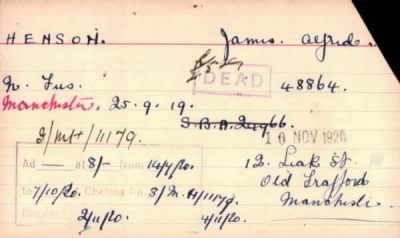 HENSON. James. Alfred.
DEAD 48864.
N. Fus.
Manchester. 25.9.19.
S.B.A. 2496б.
3/MH/11179. 10 NOV 1920
Ad — at 8/- from 14/7/20. 12. Leak St.
to 7/10/20. Chelsea No. 3/M.H/11179. Old Trafford
2/11/20. 4/11/20. Manchester.